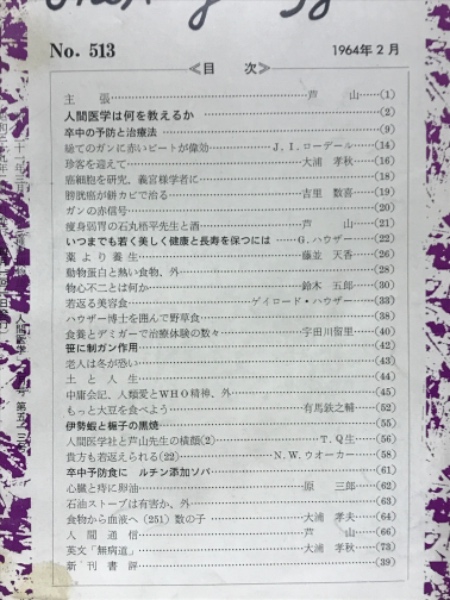 No. 513
1964年2月
≪目 次≫
主 張……芦 山……(1)
人間医学は何を教えるか……(2)
卒中の予防と治療法……(9)
総てのガンに赤いビートが偉効……J.I.ローデール……(14)
珍客を迎えて……大浦 孝秋……(16)
癌細胞を研究、義宮様学者に……(18)
膀胱癌が餅カビで治る……吉里 数喜……(19)
ガンの赤信号……(20)
痩身弱胃の石丸梧平先生と酒……芦 山……(21)
いつまでも若く美しく健康と長寿を保つには……G.ハウザー……(22)
薬より養生……藤並 天香……(26)
動物蛋白と熱い食物、外……(28)
物心不二とは何か……鈴木 五郎……(30)
若返る美容食……ゲイロード・ハウザー……(33)
ハウザー博士を囲んで野草食……(38)
食養とデミガーで治療体験の数々……宇田川留里……(40)
笹に制ガン作用……(42)
老人は冬が恐い……(43)
土と人生……(44)
中庸会記、人類愛とWHO精神、外……(45)
もっと大豆を食べよう……有馬鉄之輔……(52)
伊勢蝦と梔子の黒焼……(55)
人間医学社と芦山先生の横顔(2)……T.Q生……(56)
貴方も若返えられる(22)……N.W.ウオーカー……(58)
卒中予防食に ルチン添加ソバ……(61)
心臓と痔に卵油……原 三郎……(62)
石油ストーブは有害か、外……(63)
食物から血液へ(251)数の子……大浦 孝夫……(64)
人間通信……芦 山……(66)
英文「無病道」……大浦 孝秋……(73)
新刊書評……(39)